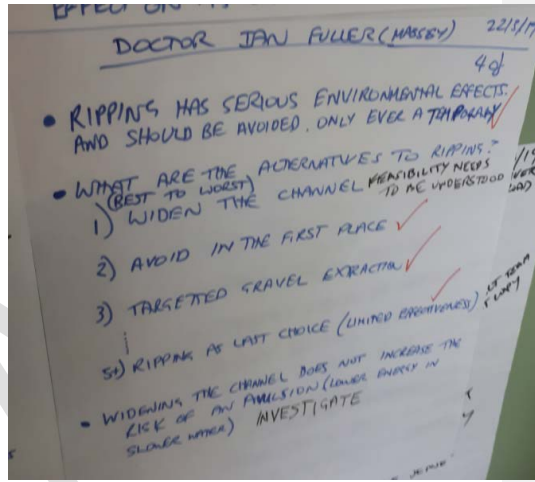 EFFECT ON
DOCTOR IAN FULLER (MASSEY) 22/5/17
4 of
• RIPPING HAS SERIOUS ENVIRONMENTAL EFFECTS.
AND SHOULD BE AVOIDED. ONLY EVER A TEMPORARY
• WHAT ARE THE ALTERNATIVES TO RIPPING?
(BEST TO WORST)
1) WIDEN THE CHANNEL FEASIBILITY NEEDS
TO BE UNDERSTOOD
2) AVOID IN THE FIRST PLACE
3) TARGETTED GRAVEL EXTRACTION
5+) RIPPING AS LAST CHOICE (LIMITED EFFECTIVENESS)
• WIDENING THE CHANNEL DOES NOT INCREASE THE
RISK OF AN AVULSION (LOWER ENERGY IN
SLOWER WATER) INVESTIGATE